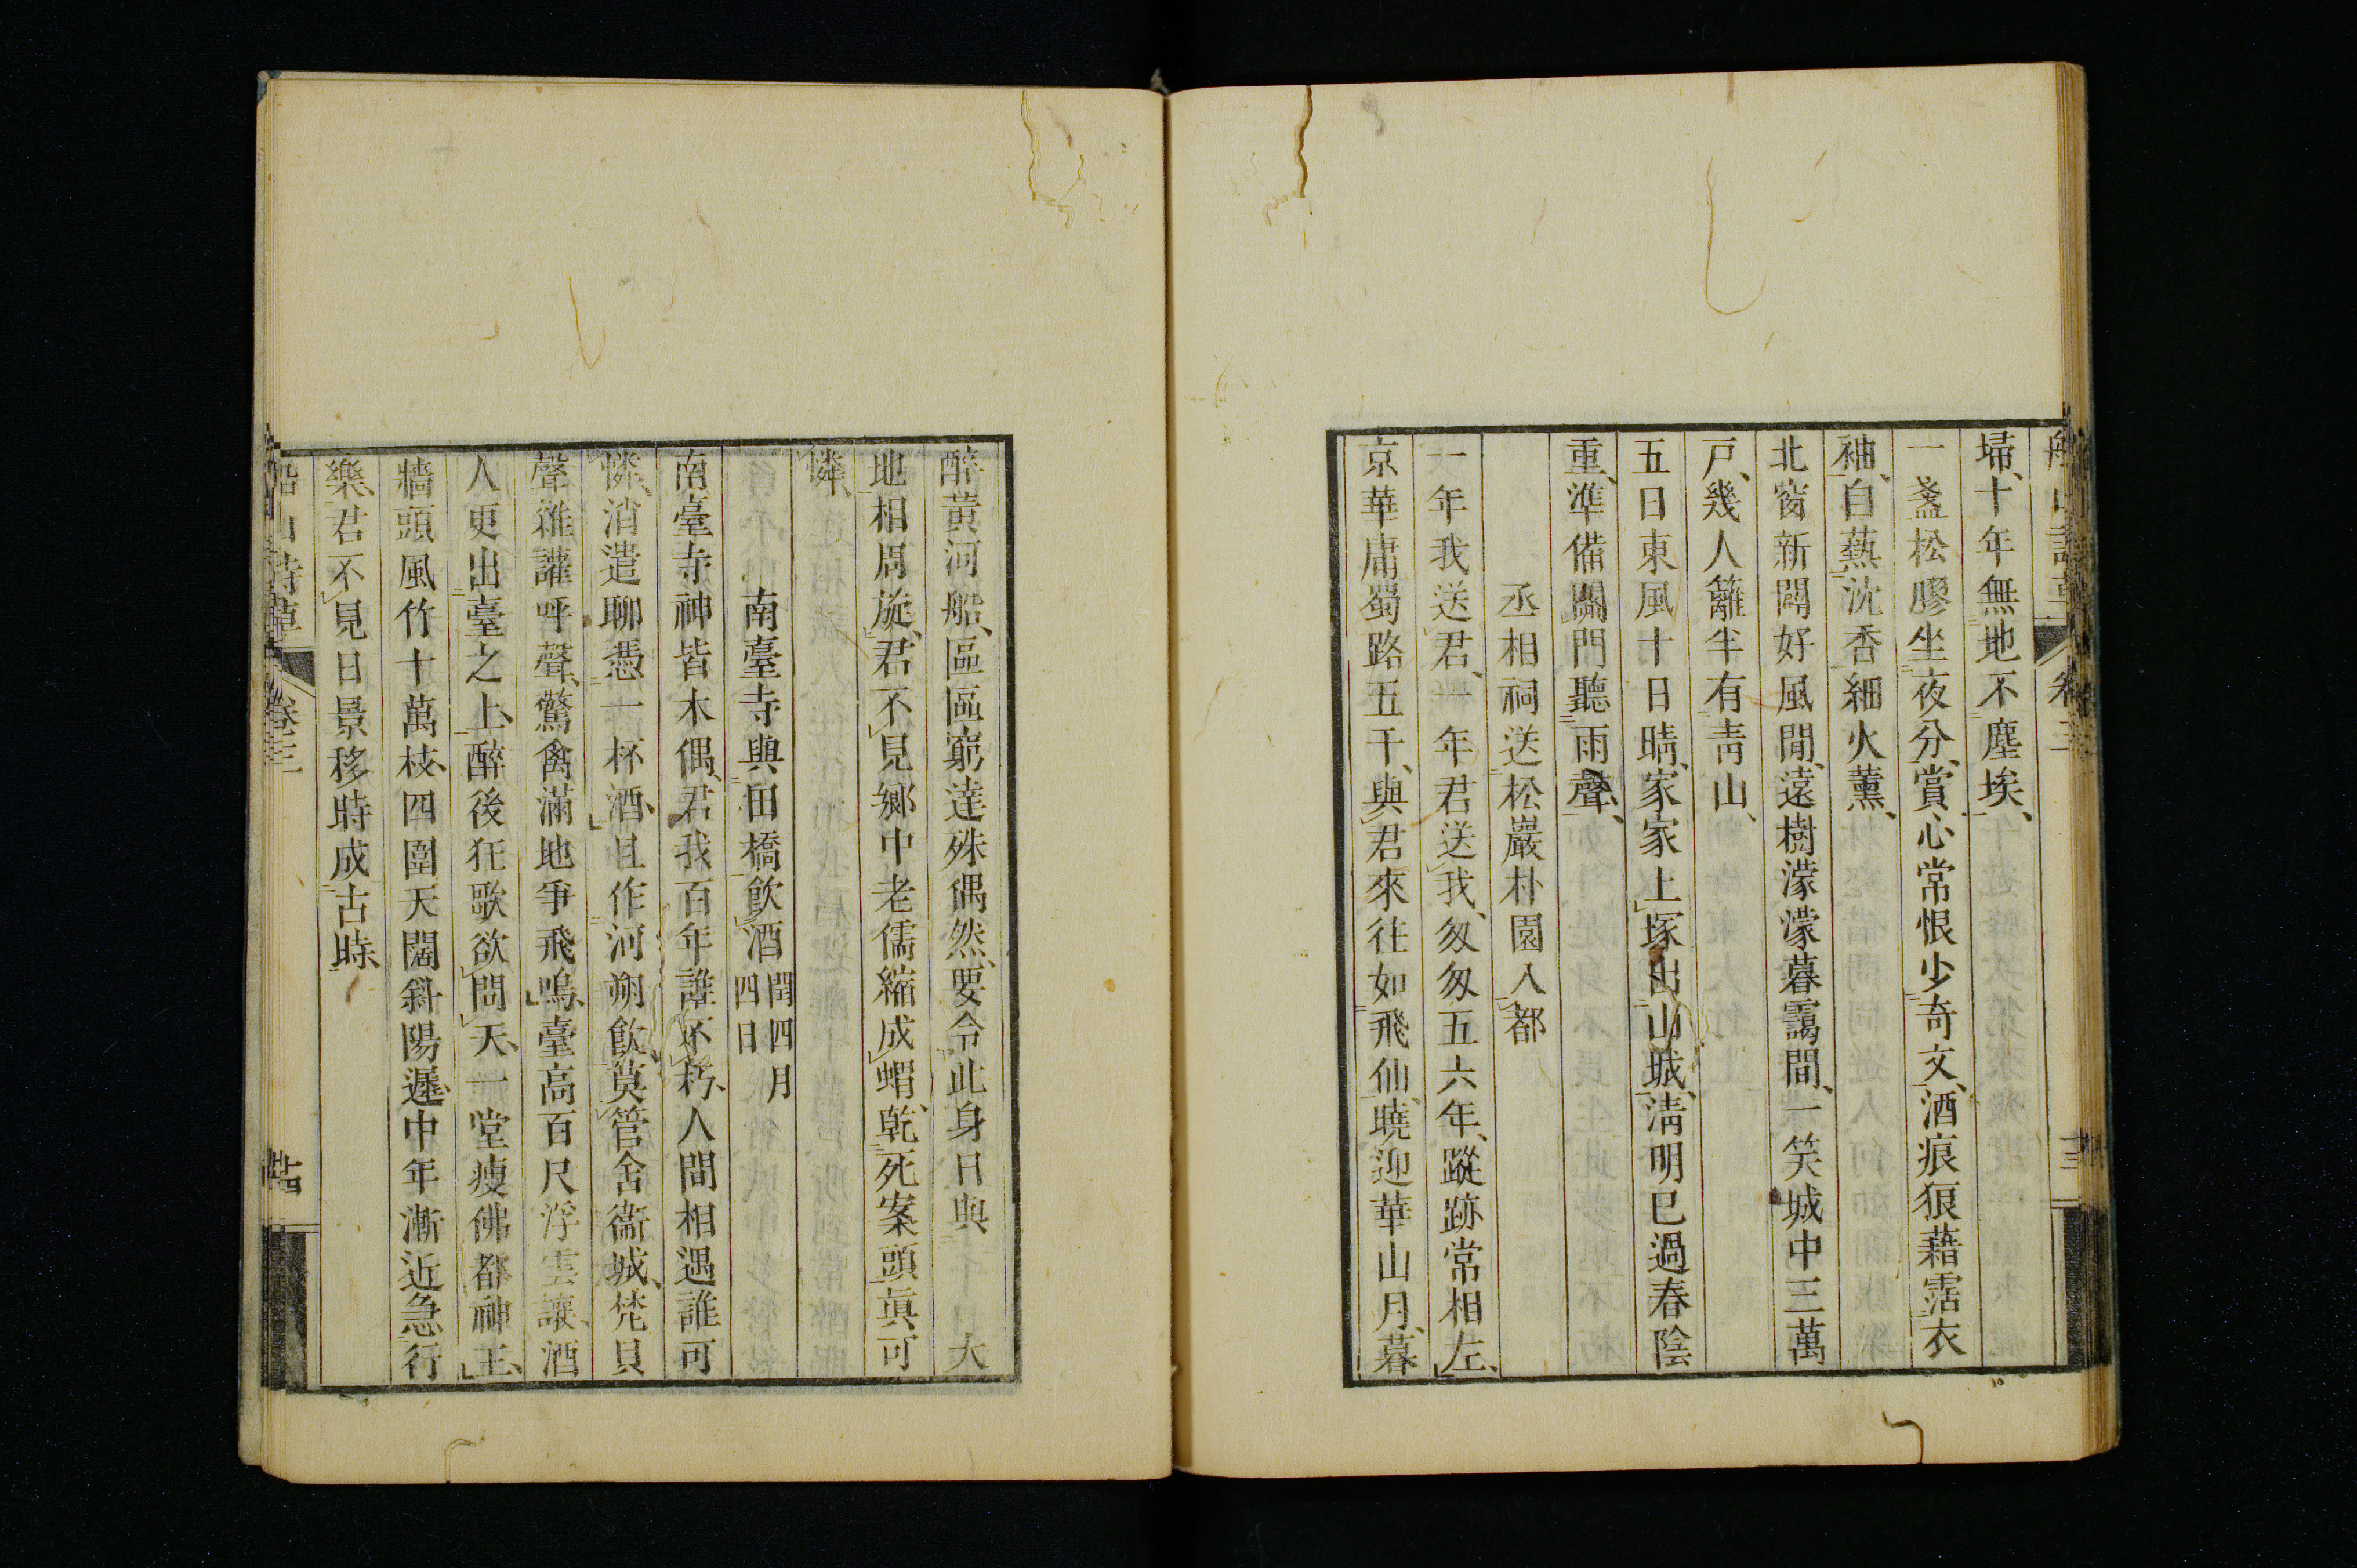 船山詩草 卷三 十三
埽十年無地不塵埃
一盞松膠坐夜分賞心常恨少奇文酒痕狼藉霑衣
袖自爇沈香細火薰
北窗新闢好風閒遠樹濛濛暮靄間一笑城中三萬
戸幾人籬半有靑山
五日東風十日晴家家上塚出山城淸明已過春陰
重準備關門聽雨聲
丞相祠送松巖朴園入都
一年我送君一年君送我匆匆五六年蹤跡常相左
京華庸蜀路五千與君來往如飛仙曉迎華山月暮
醉黃河船區區窮達殊偶然要令此身日與大
地相周旋君不見鄉中老儒縮成蝟乾死案頭眞可
憐
南臺寺與田橋飮酒閏四月四日
南臺寺神皆木偶君我百年誰不朽人間相遇誰可
憐消遣聊憑一杯酒且作河朔飮莫管舍衞城梵貝
聲雜讙呼聲驚禽滿地爭飛鳴臺高百尺浮雲讓酒
人更出臺之上醉後狂歌欲問天一堂瘦佛都神王
牆頭風竹十萬枝四圍天闊斜陽遲中年漸近急行
樂君不見日景移時成古時
船山詩草 卷三